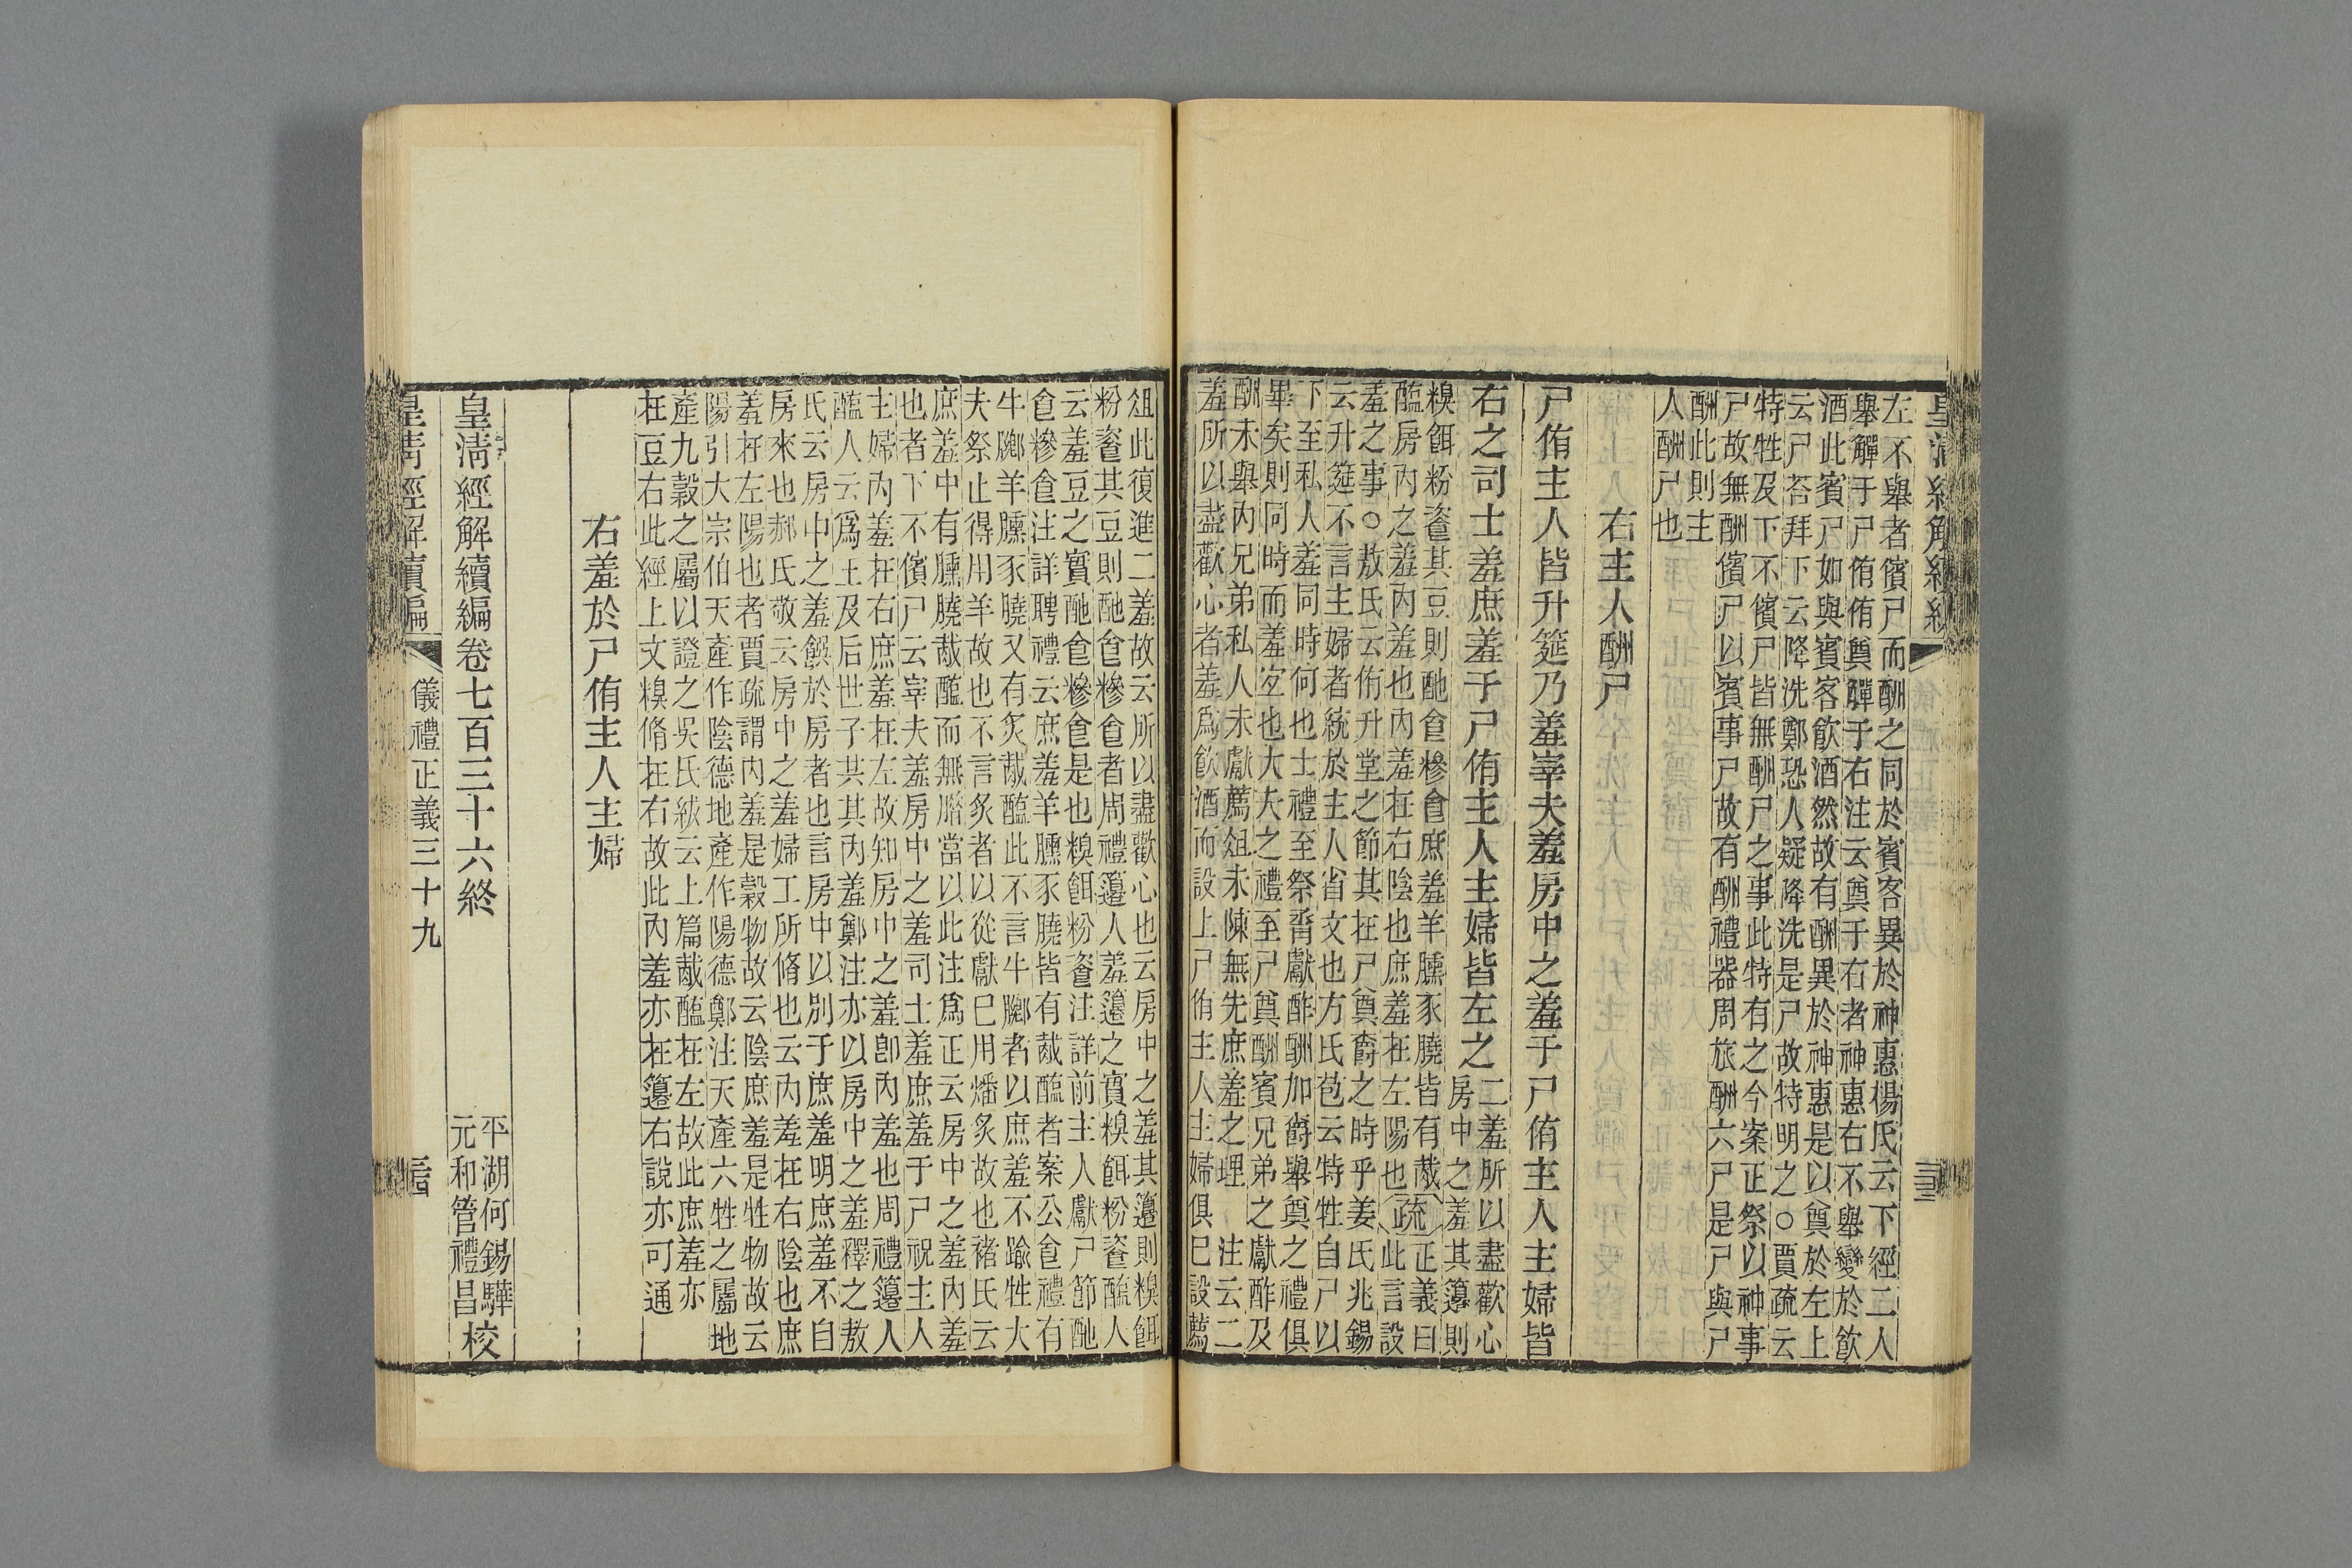 左不舉者儐尸而酬之同於賓客異於神惠楊氏云下經二人
舉觶于尸侑侑奠觶于右注云奠于右者神惠右不舉變於飲
酒此賓尸如與賓客飲酒然故有酬異於神惠是以奠於左上
云尸荅拜下云降洗鄭恐人疑降洗是尸故特明之○賈疏云
特牲及下不儐尸皆無酬尸之事此特有之今案正祭以神事
尸故無酬儐尸以賓事尸故有酬禮器周旅酬六尸是尸與尸
酬此則主
人酬尸也
右主人酬尸
尸侑主人皆升筵乃羞宰夫羞房中之羞于尸侑主人主婦皆
右之司士羞庶羞于尸侑主人主婦皆左之二羞所以盡歡心
房中之羞其籩則
糗餌粉餈其豆則酏食糝食庶羞羊臐豕膮皆有胾
醢房內之羞內羞也內羞在右陰也庶羞在左陽也
疏
正義曰
此言設
羞之事○敖氏云侑升堂之節其在尸奠爵之時乎姜氏兆錫
云升筵不言主婦者統於主人省文也方氏苞云特牲自尸以
下至私人羞同時何也士禮至祭胥獻酢酬加爵舉奠之禮俱
畢矣則同時而羞宜也大夫之禮至尸奠酬賓兄弟之獻酢及
酬未舉內兄弟私人未獻薦俎未陳無先庶羞之理 注云二
羞所以盡歡心者羞爲飲酒而設上尸侑主人主婦俱巳設薦
俎此復進二羞故云所以盡歡心也云房中之羞其籩則糗餌
粉餈其豆則酏食糝食者周禮籩人羞籩之實糗餌粉餈醢人
云羞豆之實酏食糝食是也糗餌粉餈注詳前主人獻尸節酏
食糝食注詳聘禮云庶羞羊臐豕膮皆有胾醢者案公食禮有
牛膷羊臐豕膮又有炙胾醢此不言牛膷者以庶羞不踰牲大
夫祭止得用羊故也不言炙者以從獻巳用燔炙故也褚氏云
庶羞中有臐膮胾醢而無膾當以此注爲正云房中之羞內羞
也者下不儐尸云宰夫羞房中之羞司士羞庶羞于尸祝主人
主婦內羞在右庶羞在左故知房中之羞卽內羞也周禮籩人
醢人云爲王及后世子共其內羞鄭注亦以房中之羞釋之敖
氏云房中之羞饌於房者也言房中以別于庶羞明庶羞不自
房來也郝氏敬云房中之羞婦工所脩也云內羞在右陰也庶
羞在左陽也者賈疏謂內羞是穀物故云陰庶羞是牲物故云
陽引大宗伯天產作陰德地產作陽德鄭注天產六牲之屬地
產九穀之屬以證之吳氏紱云上篇胾醢在左故此庶羞亦
在豆右此經上文糗脩在右故此內羞亦在籩右說亦可通
右羞於尸侑主人主婦
皇清經解續編卷七百三十六終
平湖何錫驊
元和管禮昌校
皇清經解續編
儀禮正義三十九